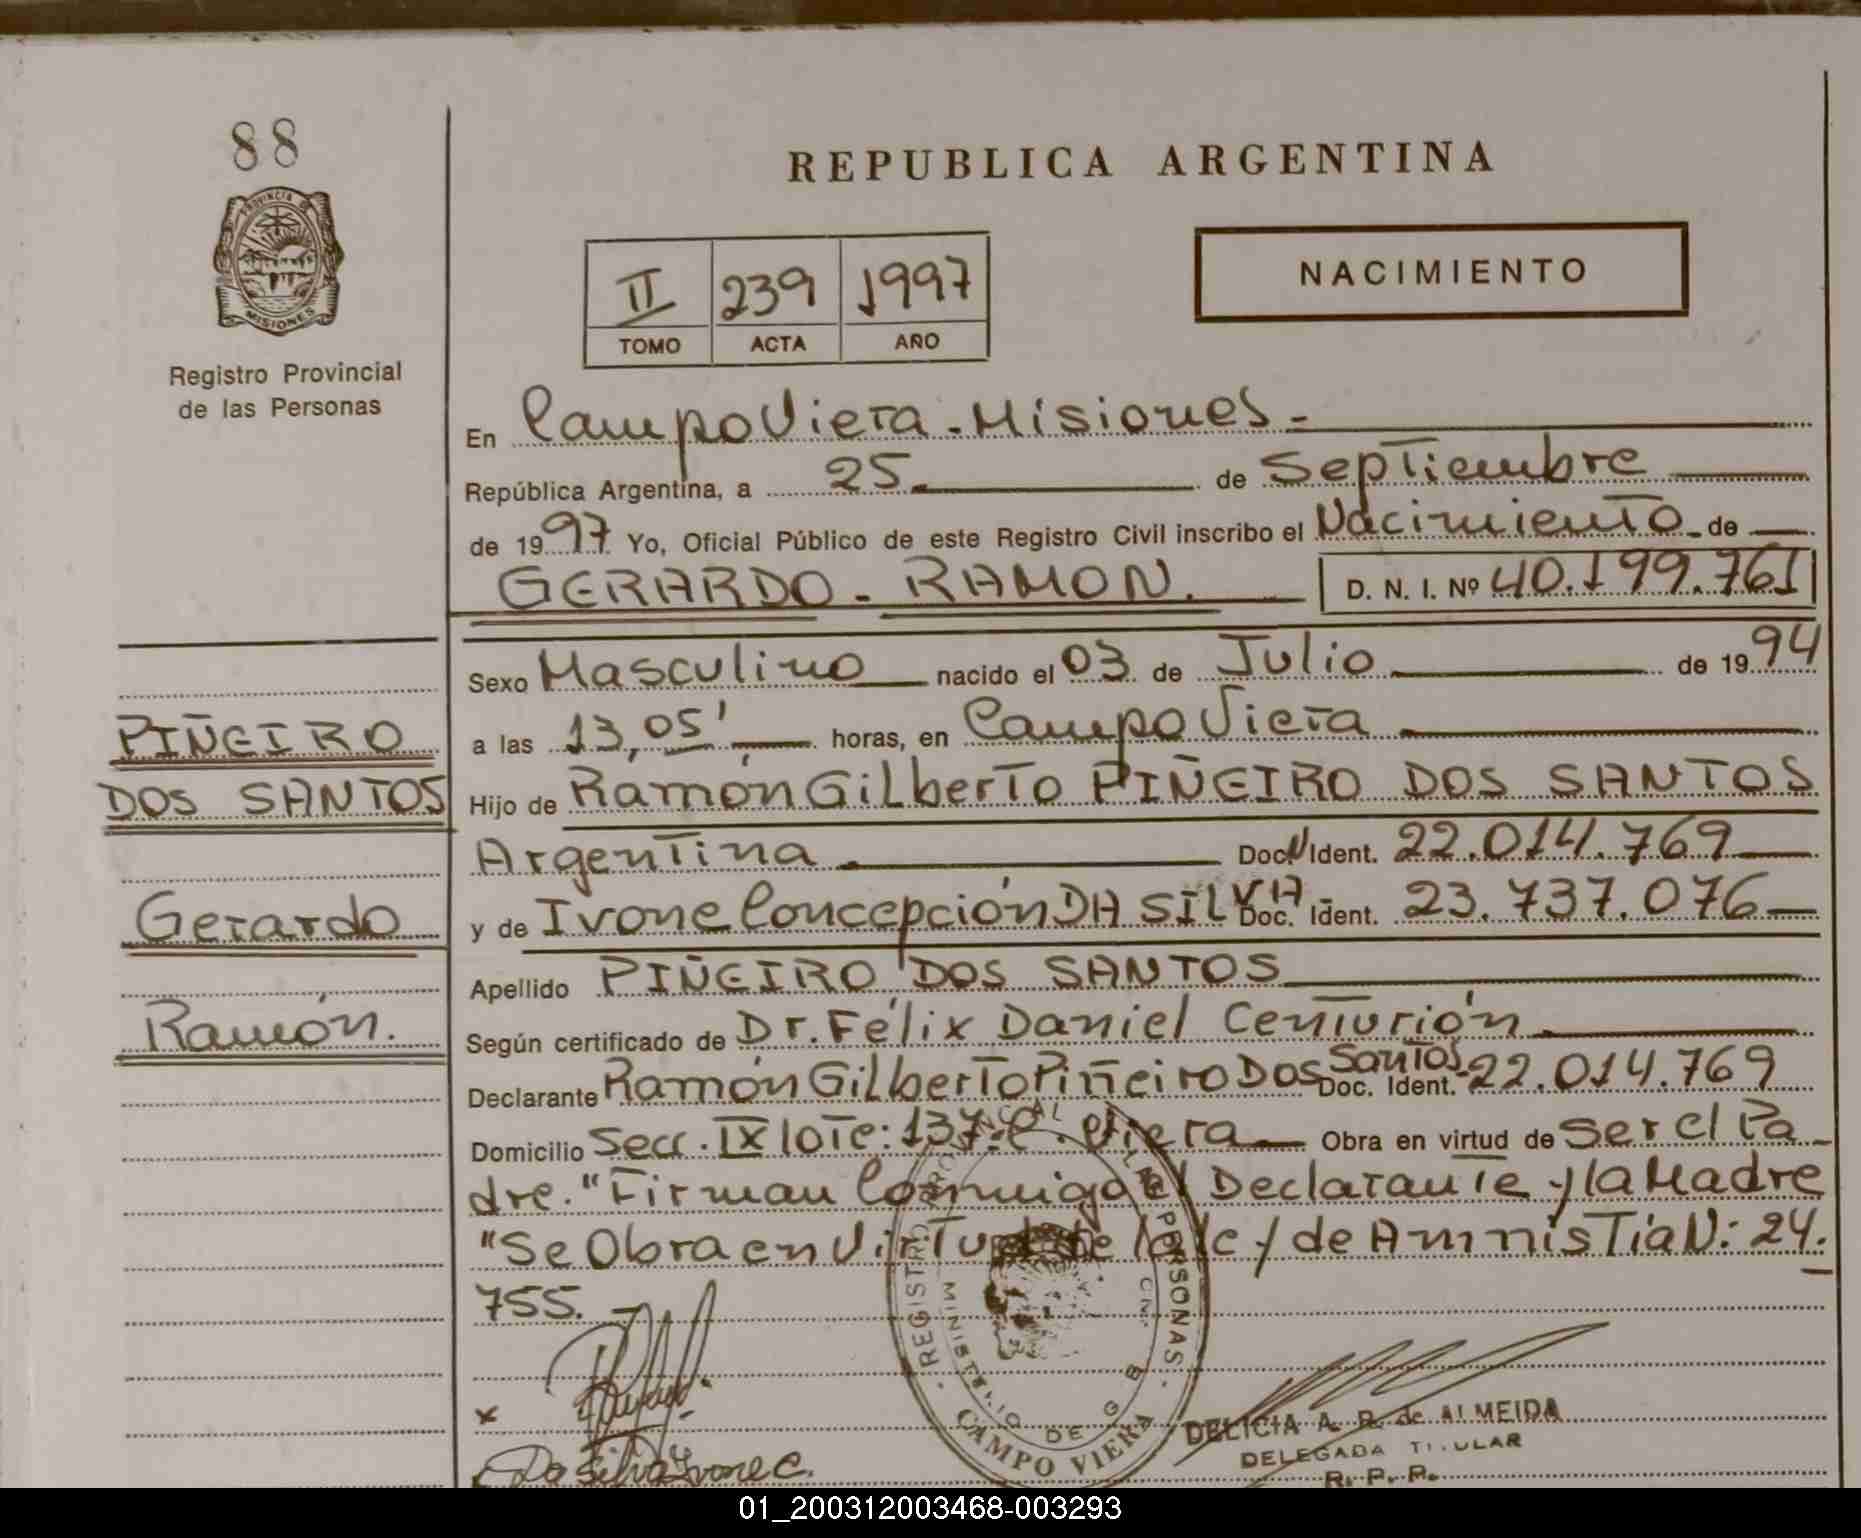 88
PROVINCIA DE
MISIONES
Registro Provincial
de las Personas
REPUBLICA ARGENTINA
II 239 1997
TOMO ACTA AÑO
NACIMIENTO
En Campo Viera - Misiones -
República Argentina, a 25 de Septiembre
de 1997 Yo, Oficial Público de este Registro Civil inscribo el Nacimiento de
GERARDO - RAMON. D. N. I. Nº 40.199.761
Sexo Masculino nacido el 03 de Julio de 1994
a las 13,05' horas, en Campo Viera
Hijo de Ramón Gilberto PIÑEIRO DOS SANTOS
Argentina Doc. N Ident. 22.014.769
y de Ivone Concepción DA SILVA Doc. Ident. 23.737.076
Apellido PIÑEIRO DOS SANTOS
Según certificado de Dr. Félix Daniel Centurión
Declarante Ramón Gilberto Piñeiro Dos Santos Doc. Ident. 22.014.769
Domicilio Secc. IX lote: 137. C. Viera Obra en virtud de Ser el Pa
dre. "Firman Conmigo el Declarante y la Madre
"Se Obra en Virtud de la ley de Amnistía N: 24.
755.
PIÑEIRO
DOS SANTOS
Gerardo
Ramón.
x
Da Silva Ivone C.
REGISTRO PROVINCIAL DE LAS PERSONAS
MINISTERIO DE GOB
CAMPO VIERA
DELICIA A. R. de ALMEIDA
DELEGADA TITULAR
R. P. P.
01_200312003468-003293